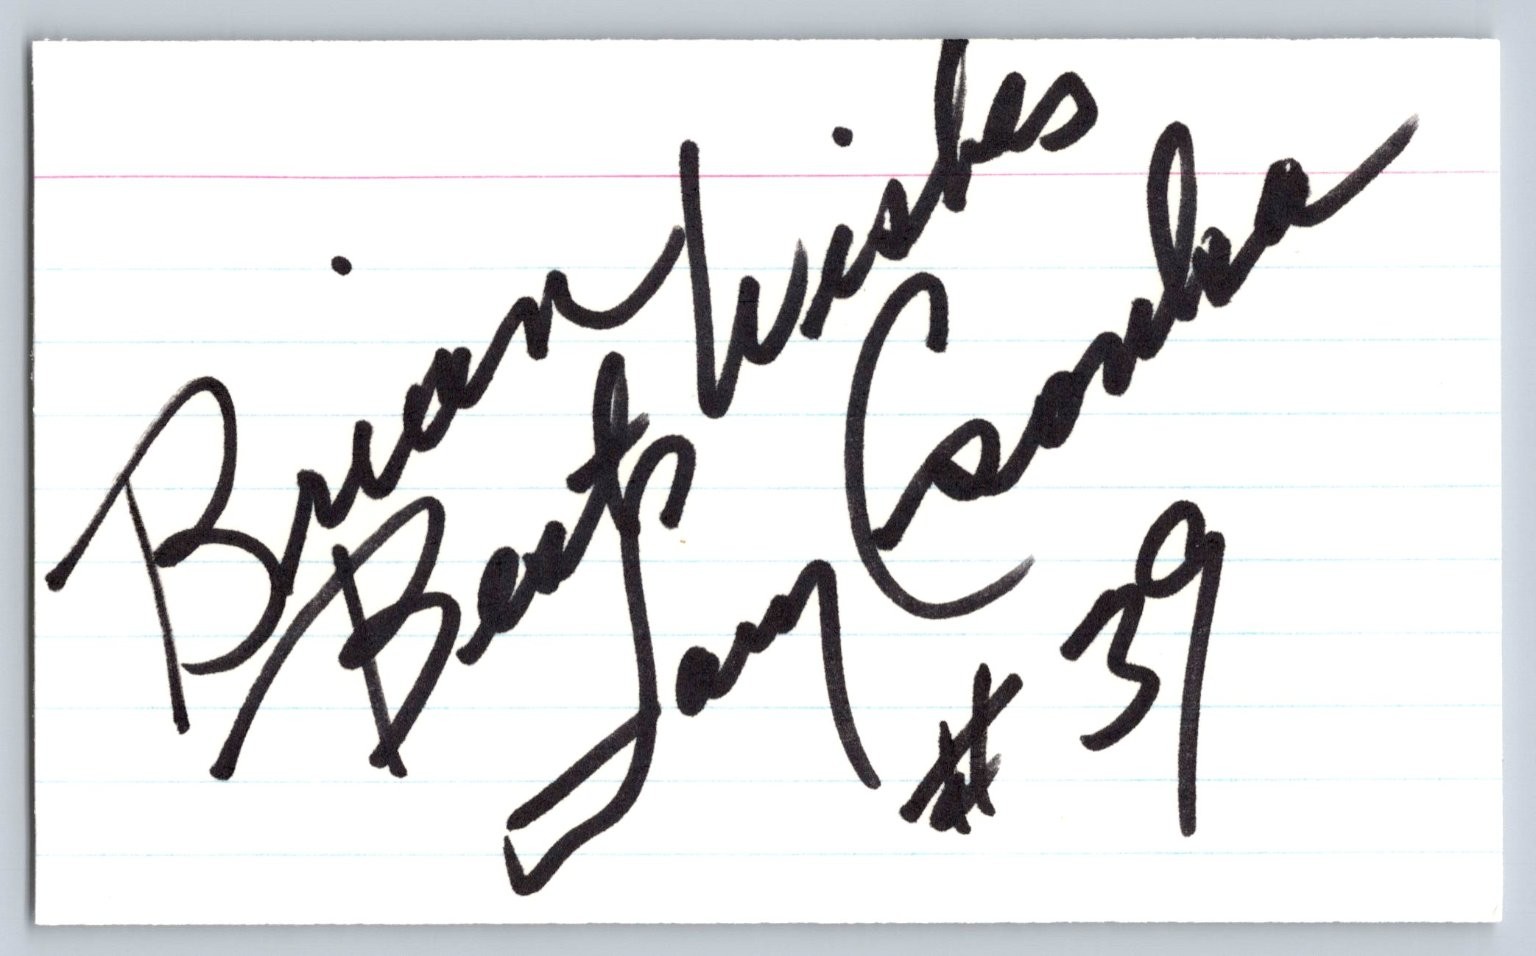 Brian
Best Wishes
Larry Csonka
# 39